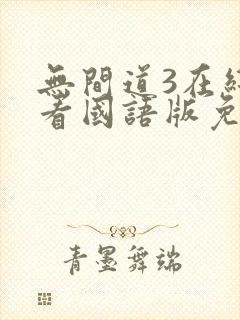 無間道3在綫
看國語版免
青墨舞端